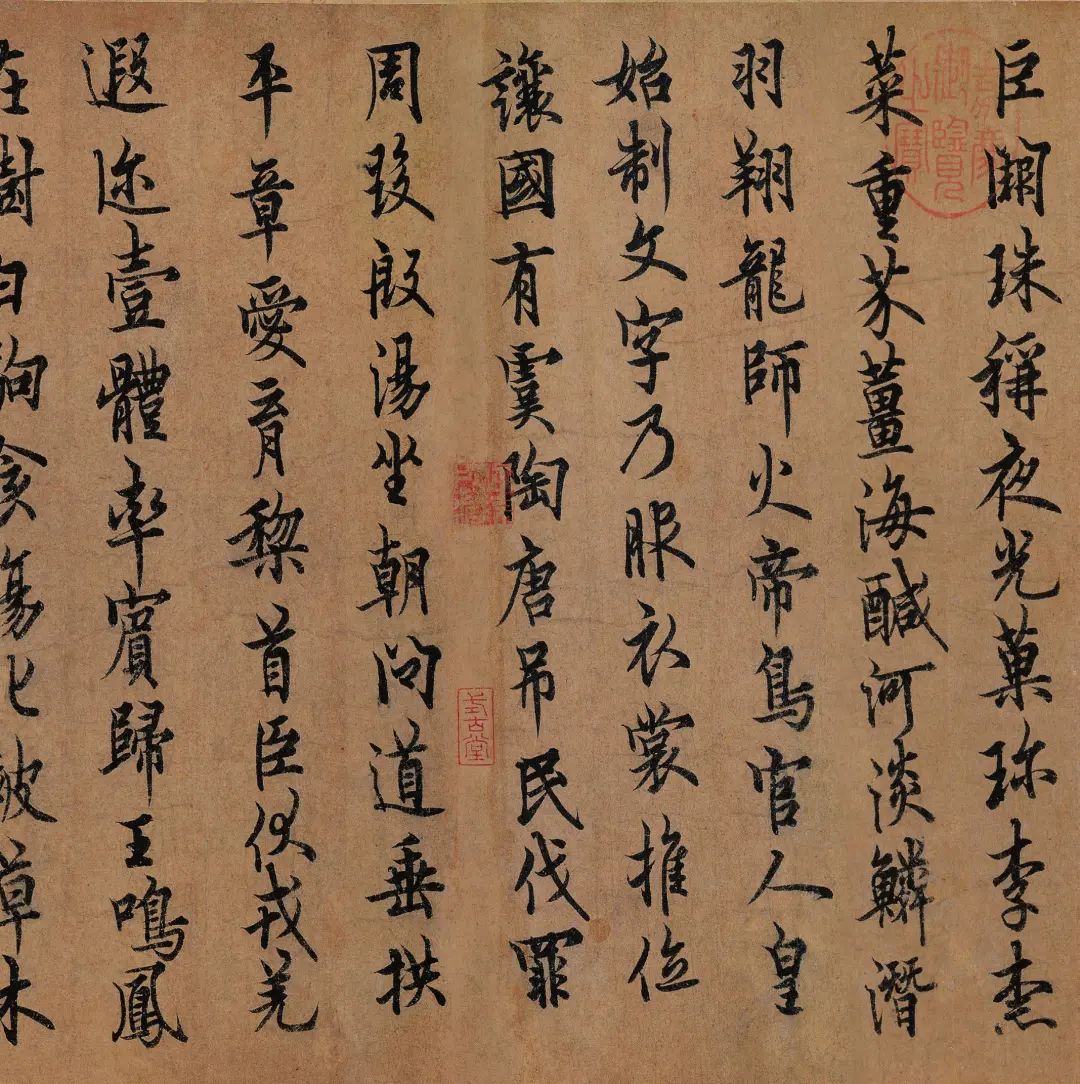 巨闕珠稱夜光菓珎李柰
菜重芥薑海醎河淡鱗潛
羽翔龍師火帝鳥官人皇
始制文字乃服衣裳推位
讓國有虞陶唐吊民伐罪
周發殷湯坐朝問道垂拱
平章愛育黎首臣伏戎羌
遐迩壹體率賓歸王鳴鳳
在樹白駒食場化被草木
嘉慶御覽之寶
式古堂